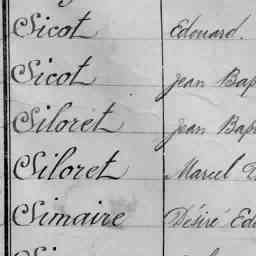 Sicot Edouard.
Sicot Jean Bap
Siloret Jean Bap
Siloret Marcel
Simaire Désiré Edo